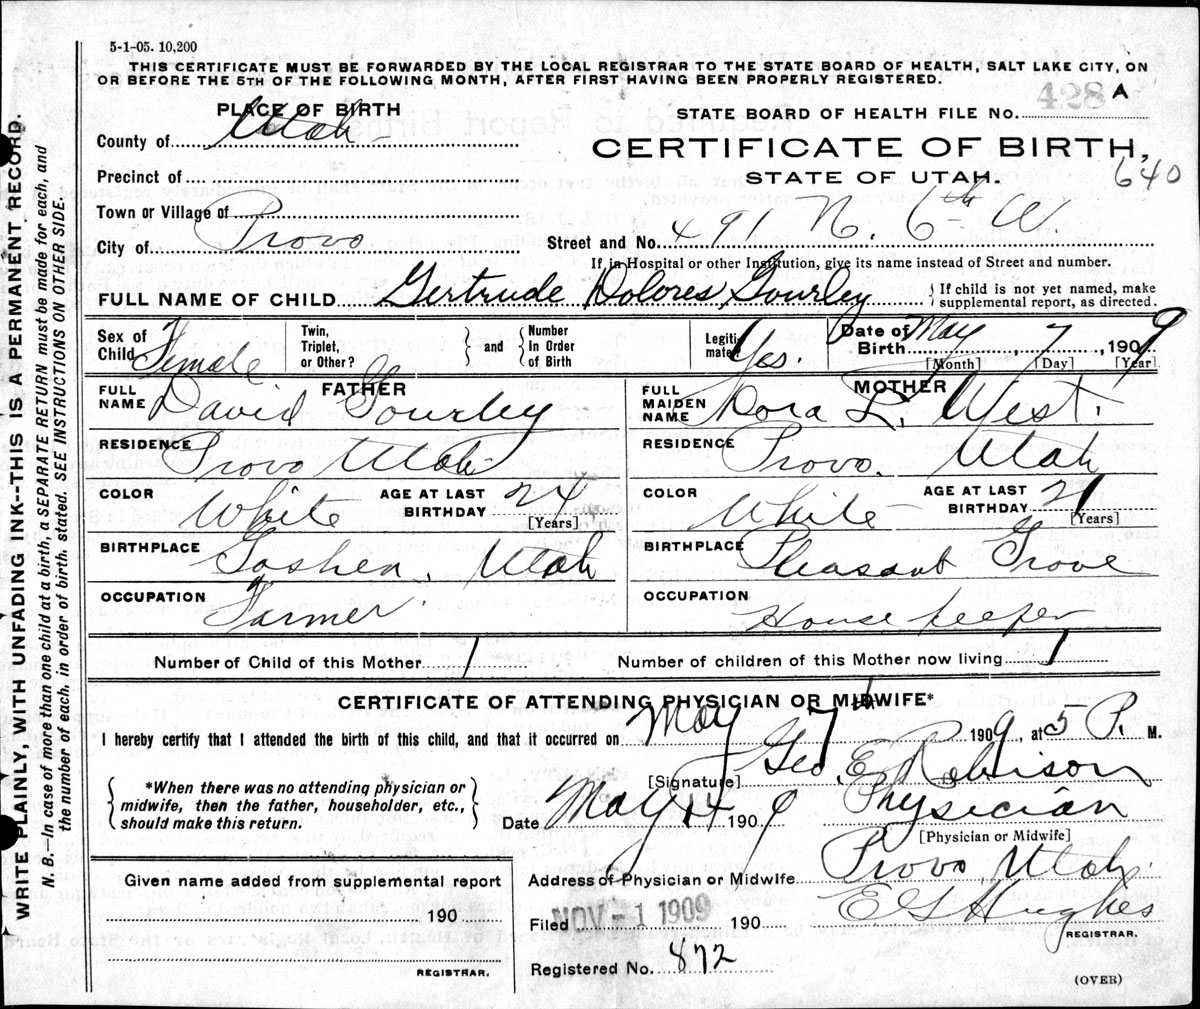 5-1-05. 10,200
THIS CERTIFICATE MUST BE FORWARDED BY THE LOCAL REGISTRAR TO THE STATE BOARD OF HEALTH, SALT LAKE CITY, ON
OR BEFORE THE 5TH OF THE FOLLOWING MONTH, AFTER FIRST HAVING BEEN PROPERLY REGISTERED.
WRITE PLAINLY, WITH UNFADING INK--THIS IS A PERMANENT RECORD.
N. B.—In case of more than one child at a birth, a SEPARATE RETURN must be made for each, and
the number of each, in order of birth, stated. SEE INSTRUCTIONS ON OTHER SIDE.
PLACE OF BIRTH
STATE BOARD OF HEALTH FILE No. 428 A
County of Utah
CERTIFICATE OF BIRTH,
640
Precinct of
STATE OF UTAH.
Town or Village of
City of Provo
Street and No. 491 N. 6th W.
If in Hospital or other Institution, give its name instead of Street and number.
FULL NAME OF CHILD Gertrude Dolores Gourley
If child is not yet named, make
supplemental report, as directed.
Sex of Child Female
Twin, Triplet, or Other? and Number In Order of Birth
Legitimate? Yes.
Date of Birth May, 7, 1909
[Month] [Day] [Year]
FATHER
FULL NAME David Gourley
RESIDENCE Provo Utah
COLOR White
AGE AT LAST BIRTHDAY 24 [Years]
BIRTHPLACE Goshen, Utah
OCCUPATION Farmer
MOTHER
FULL MAIDEN NAME Dora L. West.
RESIDENCE Provo. Utah
COLOR White
AGE AT LAST BIRTHDAY 21 [Years]
BIRTHPLACE Pleasant Grove
OCCUPATION House keeper
Number of Child of this Mother 1
Number of children of this Mother now living 1
CERTIFICATE OF ATTENDING PHYSICIAN OR MIDWIFE*
I hereby certify that I attended the birth of this child, and that it occurred on May 7th 1909, at 5 P. M.
*When there was no attending physician or
midwife, then the father, householder, etc.,
should make this return.
[Signature] Geo. E. Robison
Date May 1909 Physician
[Physician or Midwife]
Given name added from supplemental report
190
REGISTRAR.
Address of Physician or Midwife Provo, Utah.
Filed NOV -1 1909 190 E G Hughes
REGISTRAR.
Registered No. 872
(OVER)